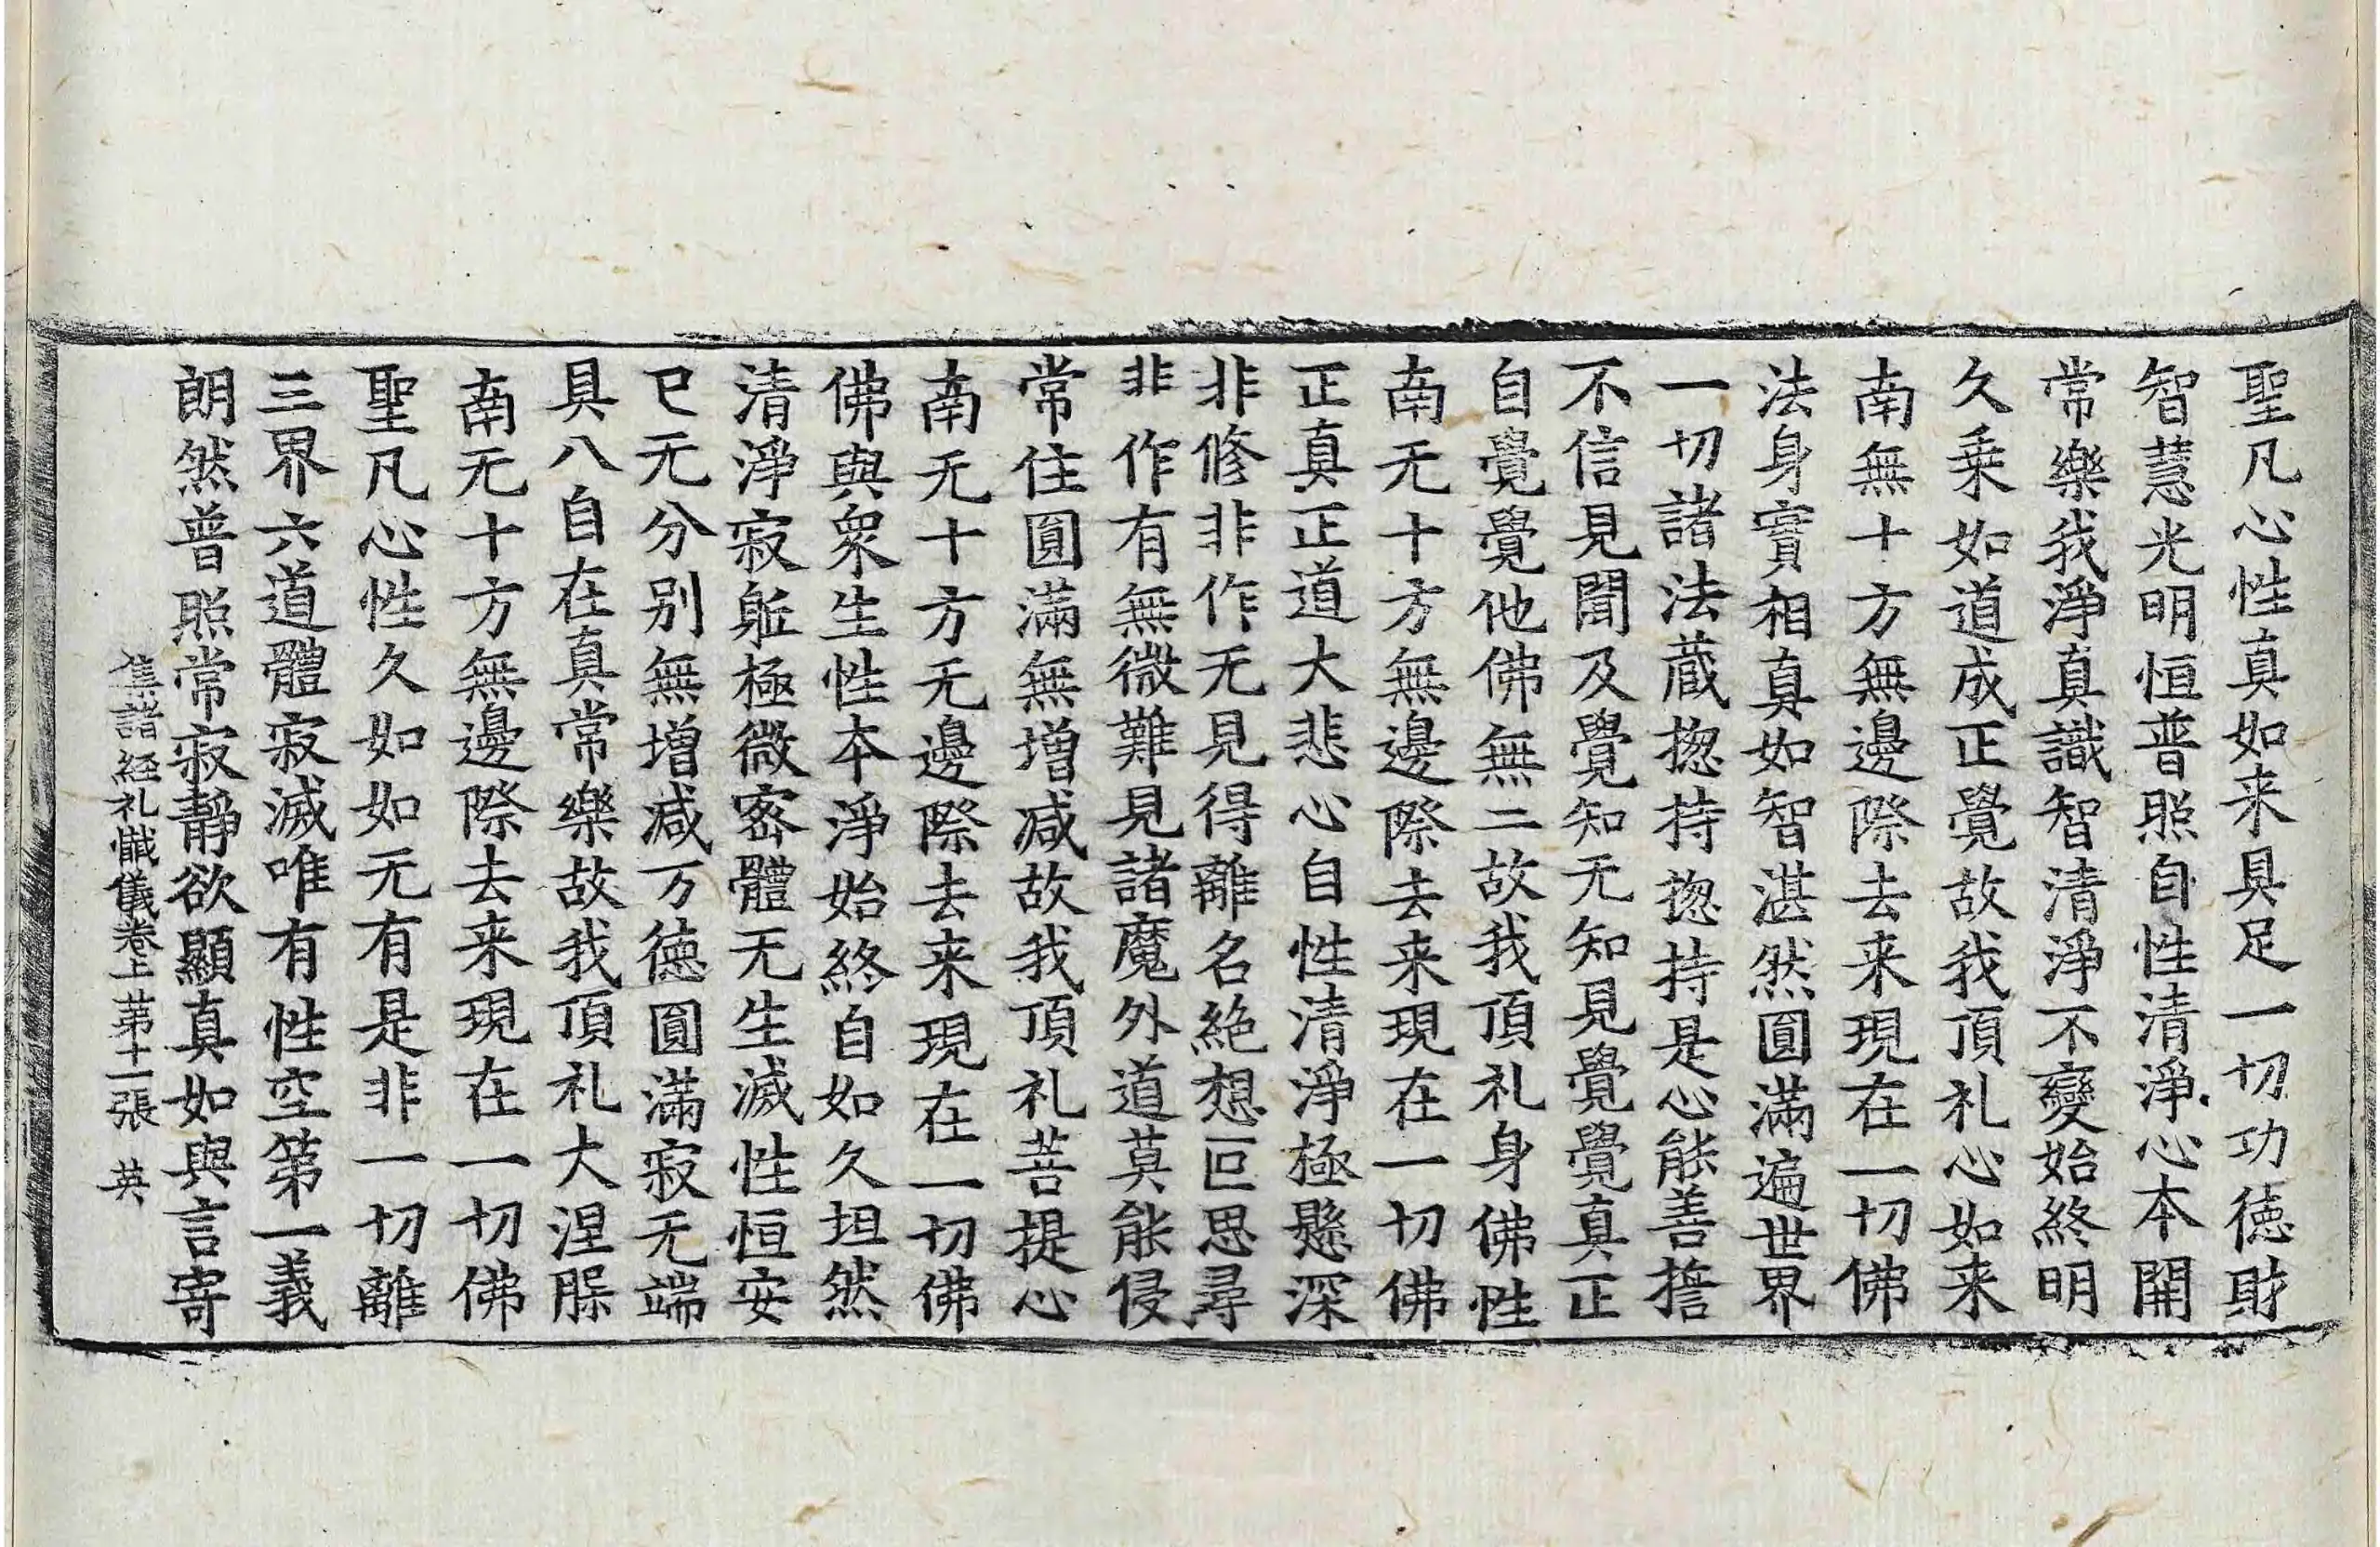 聖凡心性真如来具足一切功徳財
智慧光明恒普照自性清淨心本開
常樂我淨真識智清淨不變始終明
久乗如道成正覺故我頂礼心如来
南無十方無邊際去来現在一切佛
法身實相真如智湛然圓滿遍世界
一切諸法蔵揔持揔持是心能善擔
不信見聞及覺知无知見覺覺真正
自覺覺他佛無二故我頂礼身佛性
南无十方無邊際去来現在一切佛
正真正道大悲心自性清淨極懸深
非修非作无見得離名絶想叵思尋
非作有無微難見諸魔外道莫能侵
常住圓滿無增减故我頂礼菩提心
南无十方无邊際去来現在一切佛
佛與衆生性本淨始終自如久坦然
清淨寂躰極微宻體无生滅性恒安
已无分别無增减万徳圓滿寂无端
具八自在真常樂故我頂礼大涅槃
南无十方無邊際去来現在一切佛
聖凡心性久如如无有是非一切離
三界六道體寂滅唯有性空第一義
朗然普照常寂靜欲顯真如與言寄
集諸経礼懺儀卷上 苐十一張 英